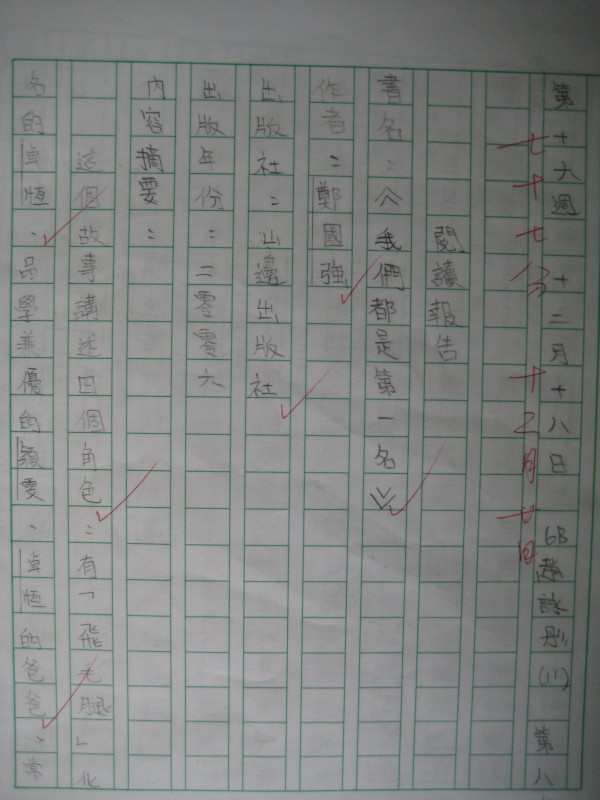 第十六週 十二月十八日 6B 趙詠彤(11) 第八
七十七分 十二月廿日
閱讀報告
書名：《我們都是第一名》
作者：鄭國強
出版社：山邊出版社
出版年份：二零零六
內容摘要：
這個故事講述四個角色：有「飛毛腿」化
名的卓恒、品學兼優的穎雯、卓恒的爸爸、常